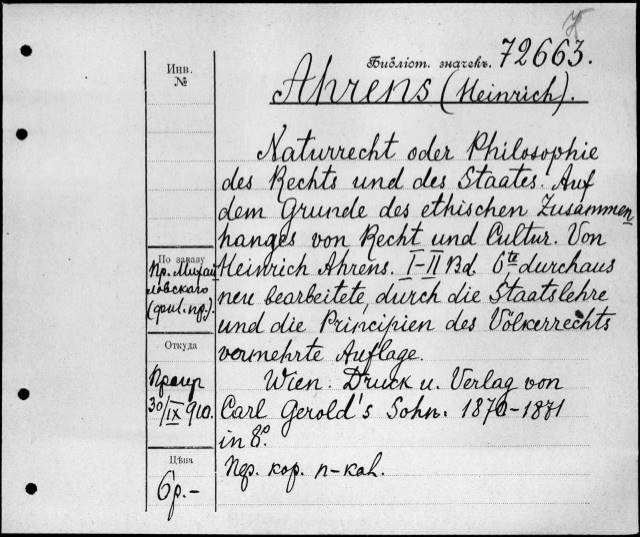 Библіот. значекъ. 72663.
Ahrens (Heinrich).
Инв.
№
Naturrecht oder Philosophie
des Rechts und des Staates. Auf
dem Grunde des ethischen Zusammen
hanges von Recht und Cultur. Von
Heinrich Ahrens. I-II Bd. 6te, durchaus
neu bearbeitete, durch die Staatslehre
und die Principien des Völkerrechts
vermehrte Auflage.
Wien. Druck u. Verlag von
Carl Gerold's Sohn. 1870-1871
in 8°.
По заказу
Пр. Михай
ловскаго
Откуда
30/IX 910.
Цѣна
6 р.-